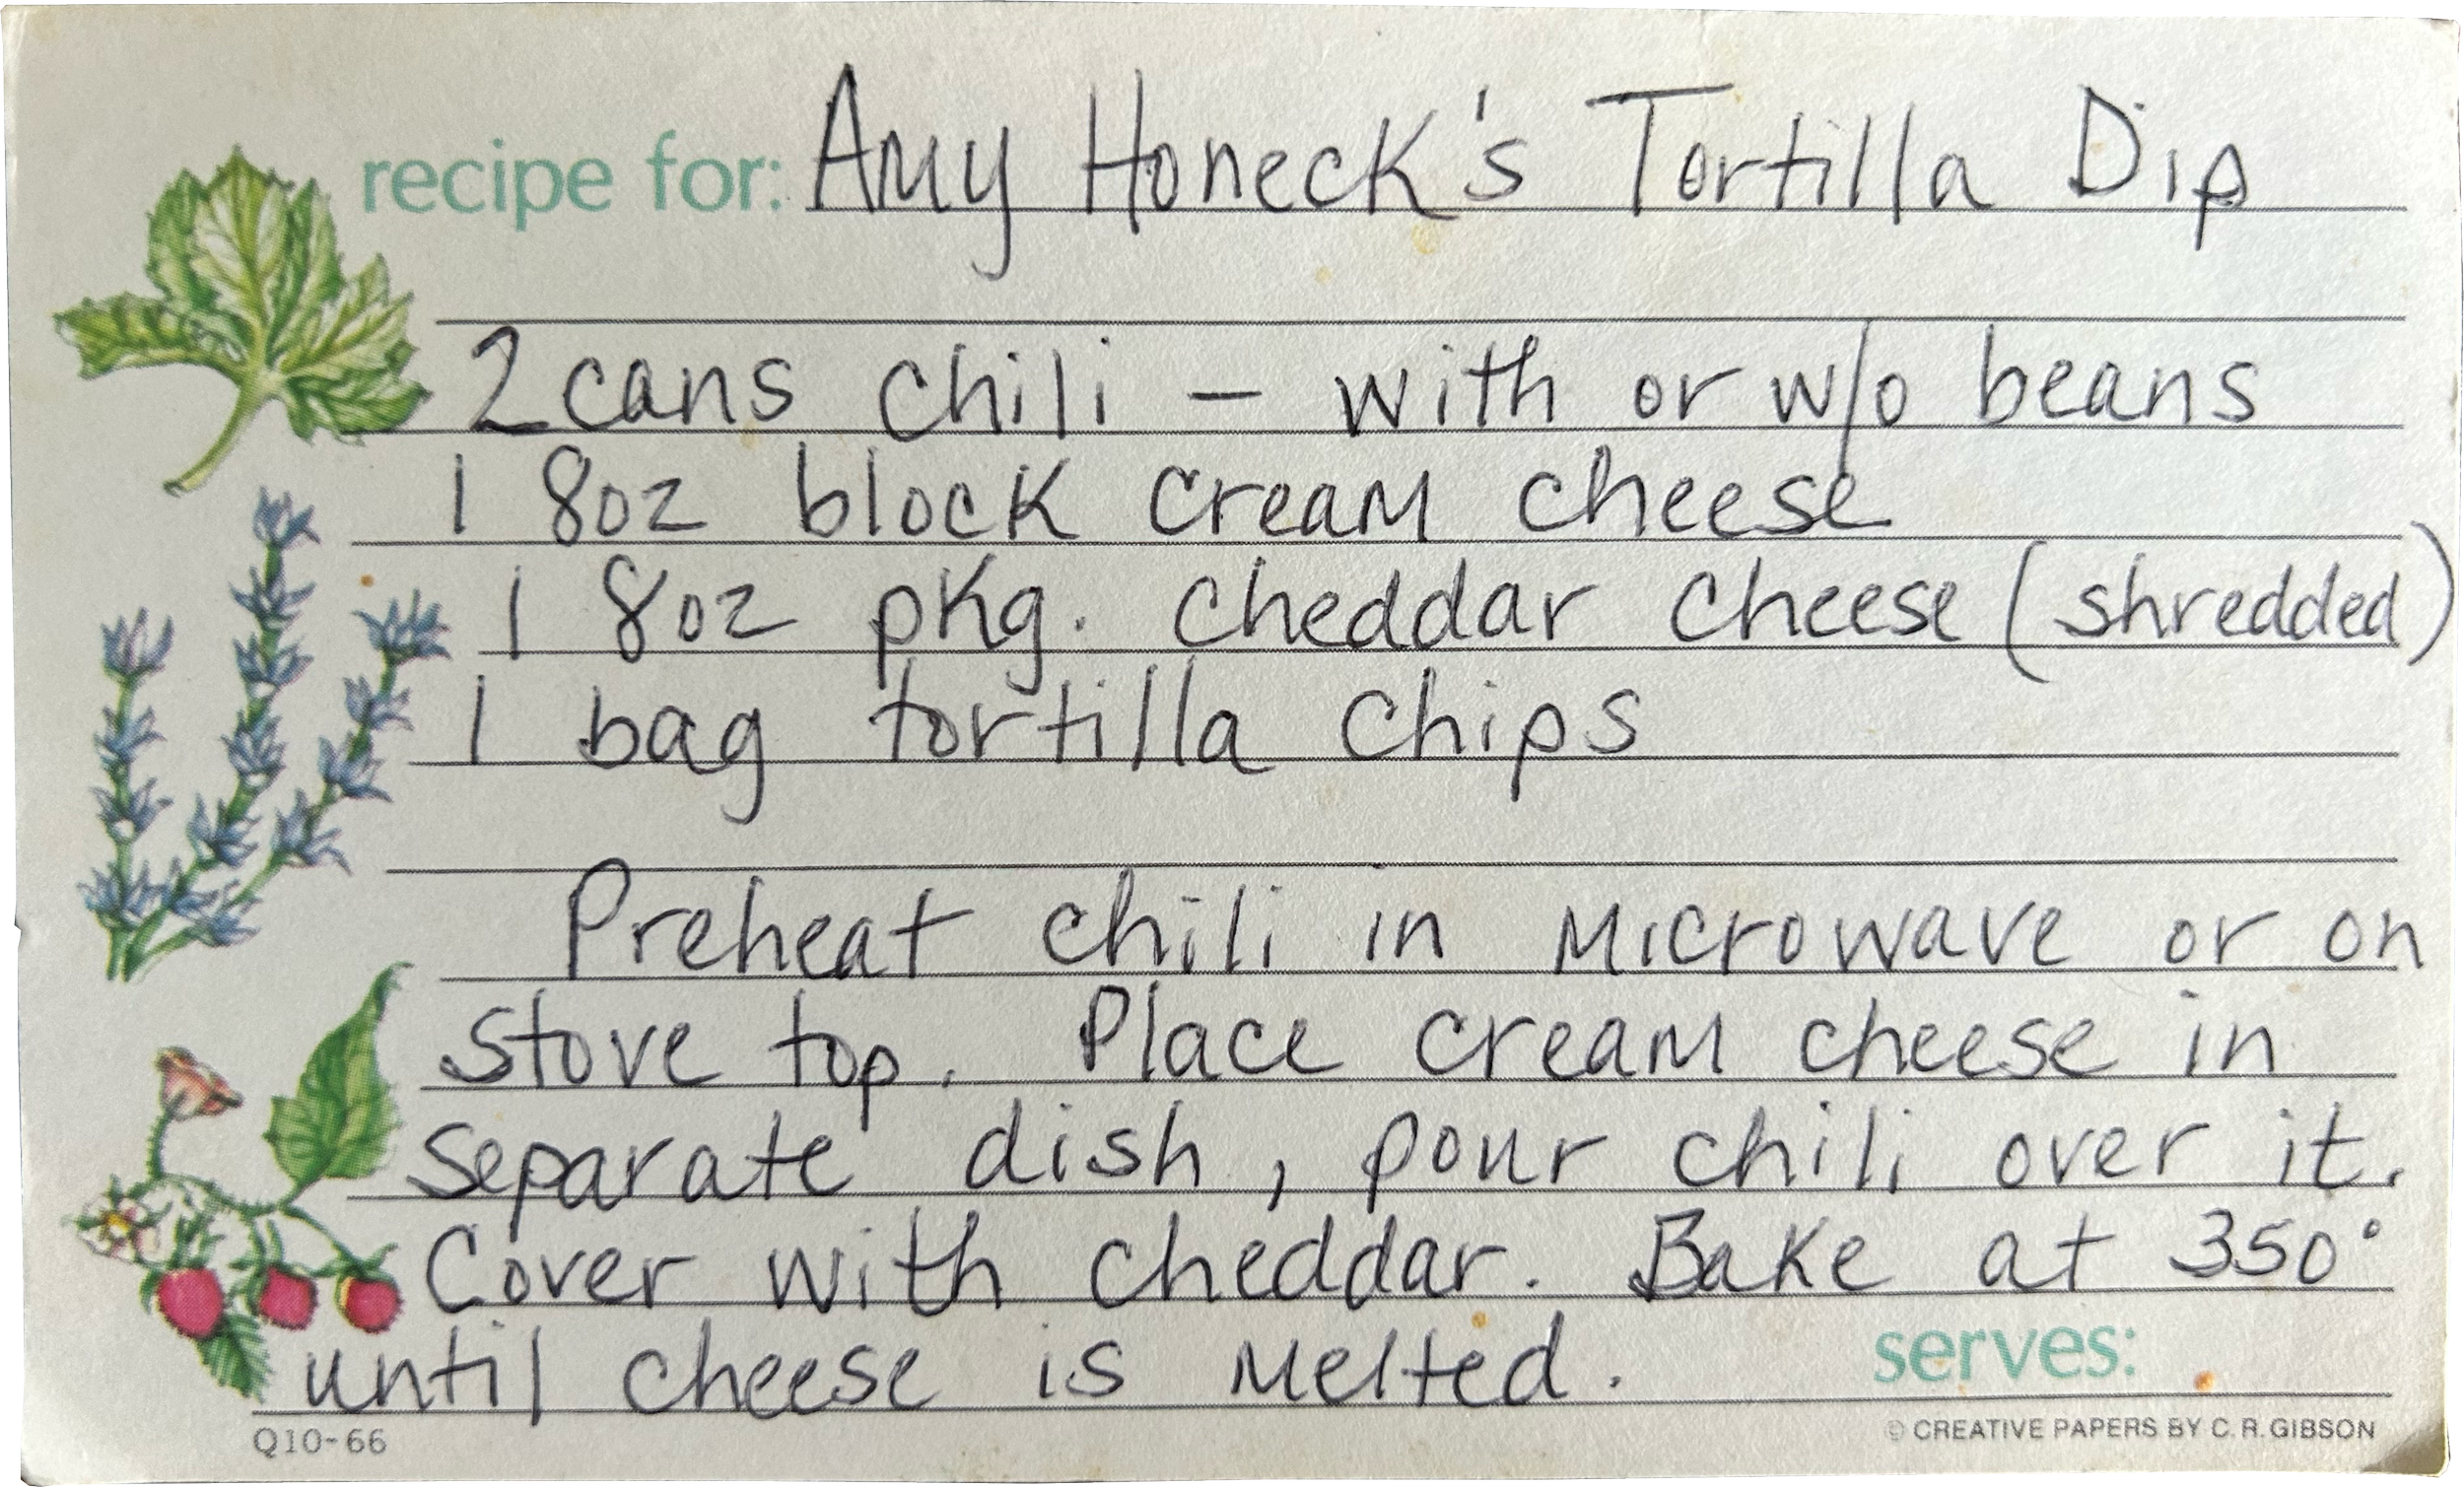 recipe for: Amy Honeck's Tortilla Dip
2 cans chili - with or w/o beans
1 8oz block cream cheese
1 8oz pkg. cheddar cheese (shredded)
1 bag tortilla chips
Preheat chili in microwave or on
stove top. Place cream cheese in
separate dish, pour chili over it.
Cover with cheddar. Bake at 350°
until cheese is melted.
serves:
Q10-66
© CREATIVE PAPERS BY C. R. GIBSON